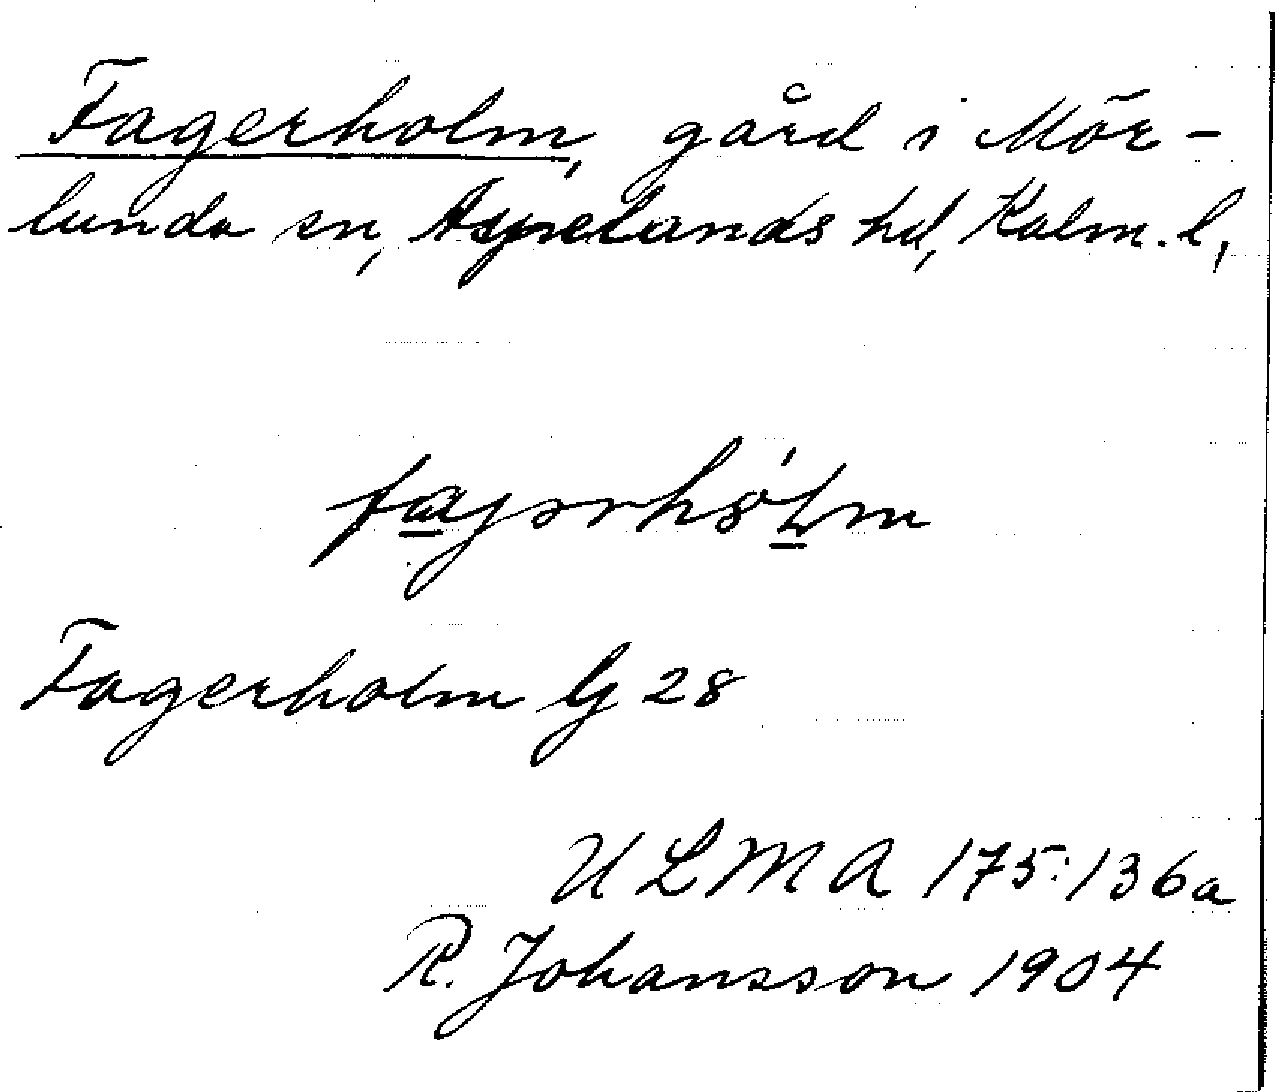 Fagerholm, gård i Mör-
lunda sn, Aspelands hd, Kalm. l,
Fagerholm G 28
ULMA 175:136a
R. Johansson 1904